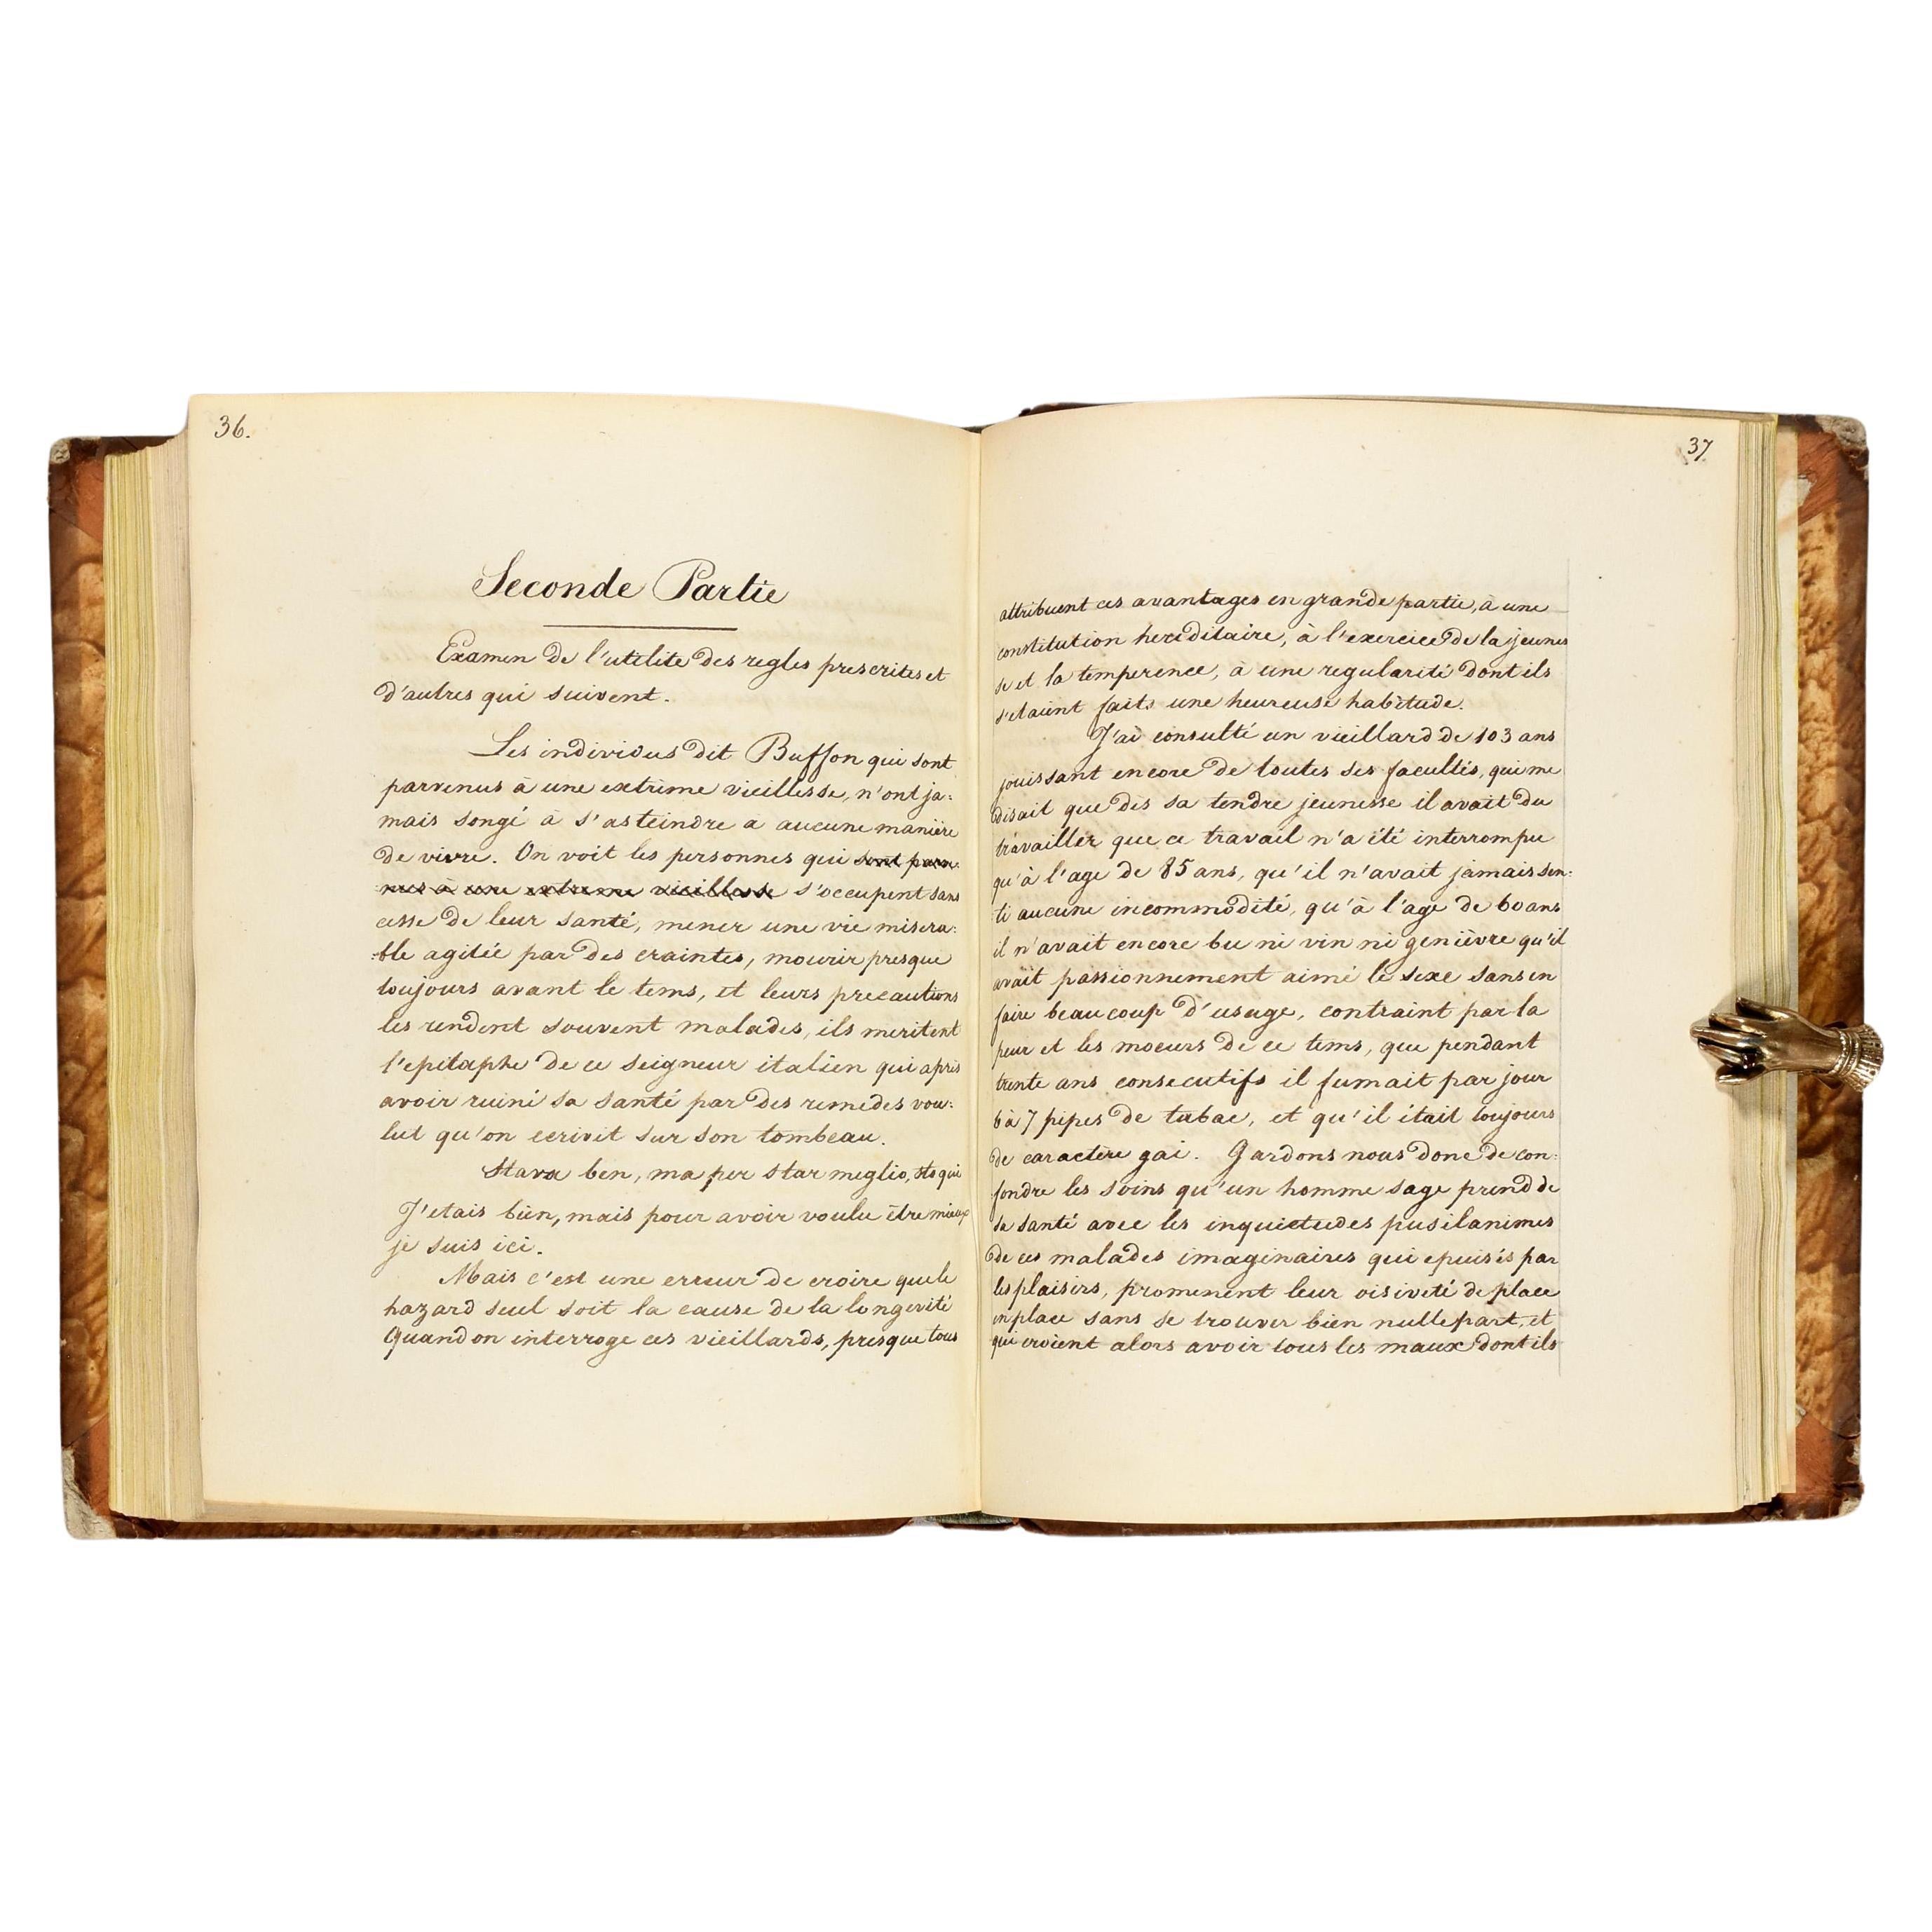 36.
Seconde Partie
Examen de l'utilité des regles prescrites et
d'autres qui suivent.
Les individus dit Buffon qui sont
parvenus à une extrême vieillesse, n'ont ja:
mais songé à s'asteindre a aucune manière
de vivre. On voit les personnes qui sont parve:
nus à une extreme vieillesse s'occupent sans
cesse de leur santé, mener une vie misera:
:ble agitée par des craintes, mourir presque
toujours avant le tems, et leurs precautions
les rendent souvent malades, ils meritent
l'epitaphe de ce seigneur italien qui après
avoir ruiné sa santé par des remedes vou:
lut qu'on ecrivit sur son tombeau.
Stava ben, ma per star meglio, sto qui
J'etais bien, mais pour avoir voulu être mieux
je suis ici.
Mais c'est une erreur de croire que le
hazard seul soit la cause de la longevité
Quand on interroge ces vieillards, presque tous
37
attribuent ces avantages en grande partie, à une
constitution hereditaire, à l'exercice de la jeunes
se et la temperence, à une regularité dont ils
s'etaient faits une heureuse habitude.
J'ai consulté un vieillard de 103 ans
jouissant encore de toutes ses facultés, qui me
disait que dès sa tendre jeunesse il avait du
travailler que ce travail n'a été interrompu
qu'à l'age de 85 ans, qu'il n'avait jamais sen:
ti aucune incommodité, qu'à l'age de 60 ans
il n'avait encore bu ni vin ni genièvre qu'il
avait passionnement aimé le sexe sans en
faire beaucoup d'usage, contraint par la
peur et les moeurs de ce tems, que pendant
trente ans consecutifs il fumait par jour
6 à 7 pipes de tabac, et qu'il était toujours
de caractère gai. Gardons nous donc de con:
fondre les soins qu'un homme sage prend de
sa santé avec les inquietudes pusilanimes
de ces malades imaginaires qui epuisés par
les plaisirs, promenent leur oisiveté de place
en place sans se trouver bien nulle part, et
qui croient alors avoir tous les maux dont ils